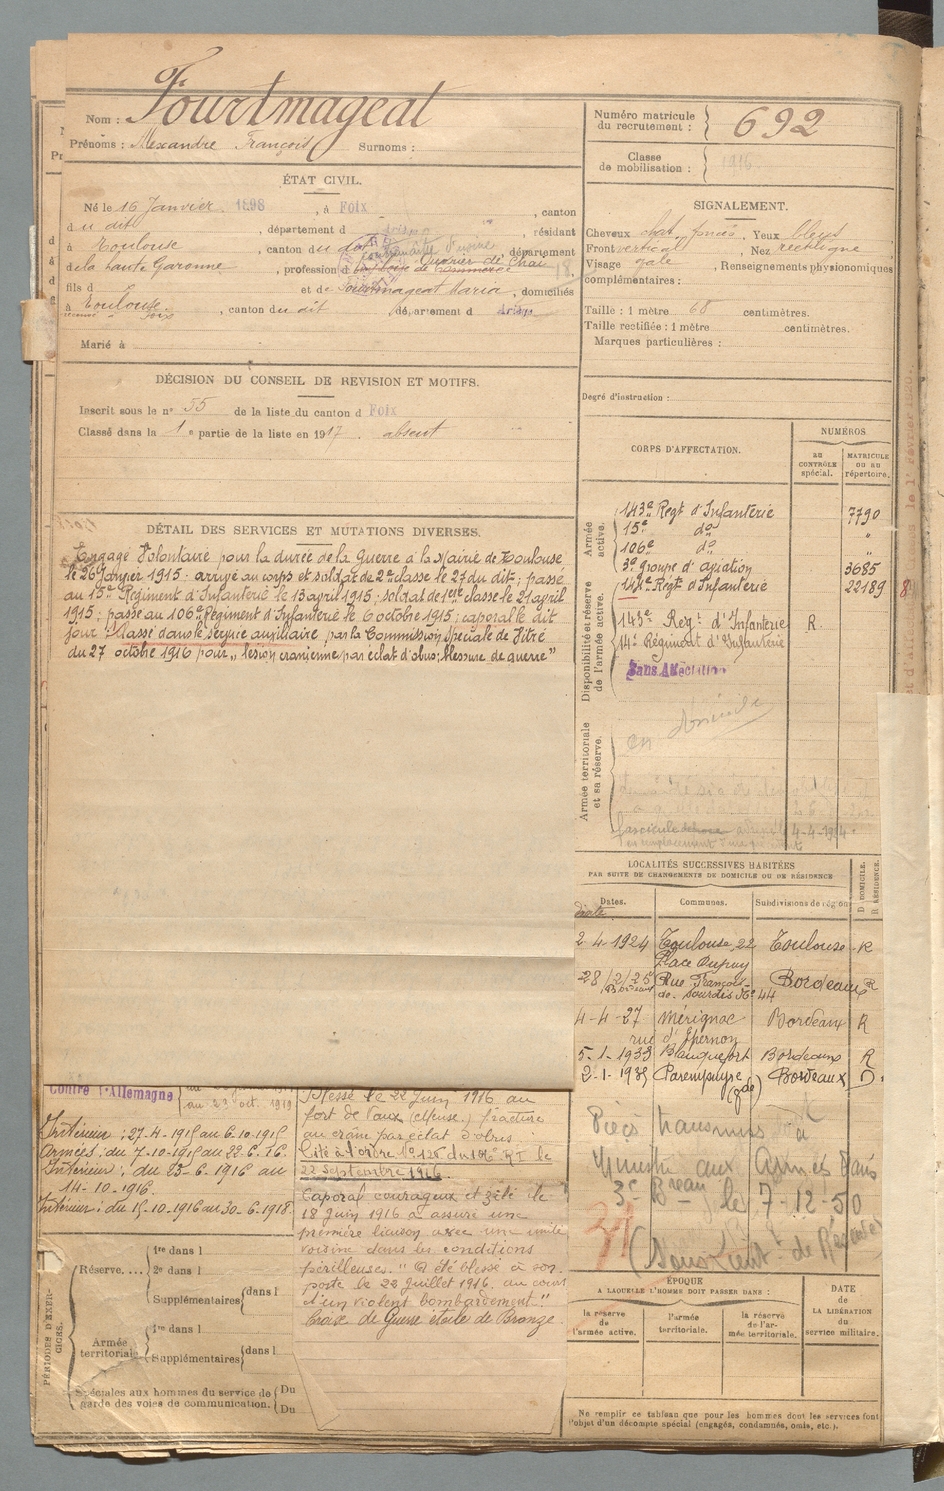 Nom : Fourtmageat
Prénoms : Alexandre François Surnoms :
Numéro matricule du recrutement : 692
Classe de mobilisation : 1916
ÉTAT CIVIL.
Né le 16 Janvier 1898, à Foix, canton
du dit, département d Ariège, résidant
à Toulouse, canton du dit, département
de la haute Garonne, profession d
fils d et de Fourtmageat Maria, domiciliés
à Toulouse, canton du dit, département d Ariège
Foix
Marié à
SIGNALEMENT.
Cheveux chat. foncés, Yeux bleus
Front vertical, Nez rectiligne
Visage, Renseignements physionomiques
complémentaires :
Taille : 1 mètre 68 centimètres.
Taille rectifiée : 1 mètre centimètres.
Marques particulières :
Degré d'instruction :
DÉCISION DU CONSEIL DE REVISION ET MOTIFS.
Inscrit sous le n° 55 de la liste du canton d Foix
Classé dans la 1e partie de la liste en 1917. absent
DÉTAIL DES SERVICES ET MUTATIONS DIVERSES.
Engagé Volontaire pour la durée de la Guerre à la Mairie de Toulouse
le 26 Janvier 1915 ; arrivé au corps et soldat de 2me classe le 27 du dit ; passé
au 15e Régiment d'Infanterie le 13 avril 1915 ; soldat de 1ère classe le 21 avril
1915 ; passé au 106e Régiment d'Infanterie le 6 octobre 1915 ; caporal le dit
jour. Classé dans le service auxiliaire par la Commission Spéciale de Vitré
du 27 octobre 1916 pour „ lésion cranienne par éclat d'obus ; blessure de guerre "
CORPS D'AFFECTATION.
NUMÉROS
AU CONTRÔLE spécial.
MATRICULE OU AU répertoire.
Armée active.
143e Regt d'Infanterie 7790
15e do "
106e do "
3e groupe d'aviation 3685
14e Regt d'Infanterie 22189
Disponibilité et réserve de l'armée active.
143e Regt d'Infanterie R.
14e Régiment d'Infanterie
Sans Affectation
Armée territoriale et sa réserve.
fascicule 4-4-1914
LOCALITÉS SUCCESSIVES HABITÉES
PAR SUITE DE CHANGEMENTS DE DOMICILE OU DE RÉSIDENCE
Dates. Communes. Subdivisions de région D. DOMICILE. R. RÉSIDENCE.
2-4-1924 Toulouse, 22 Place Dupuy Toulouse R
28/2/25 Rue François de Sourdis No 44 Bordeaux R
4-4-27 Mérignac rue d'Épernon Bordeaux R
5-1-1933 Blanquefort Bordeaux R
2-1-1935 Parempuyre (gde) Bordeaux D.
Contre l'Allemagne
au 23 oct. 1919
Intérieur : 27-4-1915 au 6-10-1915
Armées : du 7-10-1915 au 22-6-16.
Intérieur : du 23-6-1916 au
14-10-1916.
Intérieur : du 15-10-1916 au 30-6-1918.
Blessé le 22 Juin 1916 au
fort de Vaux (Meuse.) fracture
au crâne par éclat d'obus
Cité à l'ordre No 128 du 106e RI le
22 septembre 1916.
Caporal courageux et zélé le
18 juin 1916 a assuré une
première liaison avec une unité
voisine dans les conditions
périlleuses. " A été blessé à son
poste le 22 juillet 1916, au cours
d'un violent bombardement."
Croix de Guerre étoile de Bronze.
Pièces transmises à
Ministre aux Armées Paris
3e Bureau le 7-12-50
(Sous Lieut. de Réserve)
PÉRIODES D'EXERCICES.
Réserve.... 1re dans l
2e dans l
Supplémentaires dans l
Armée territoriale 1re dans l
Supplémentaires dans l
Spéciales aux hommes du service de garde des voies de communication. Du
Du
ÉPOQUE
A LAQUELLE L'HOMME DOIT PASSER DANS :
la réserve de l'armée active.
l'armée territoriale.
la réserve de l'armée territoriale.
DATE de LA LIBÉRATION du service militaire.
Ne remplir ce tableau que pour les hommes dont les services font
l'objet d'un décompte spécial (engagés, condamnés, omis, etc.).